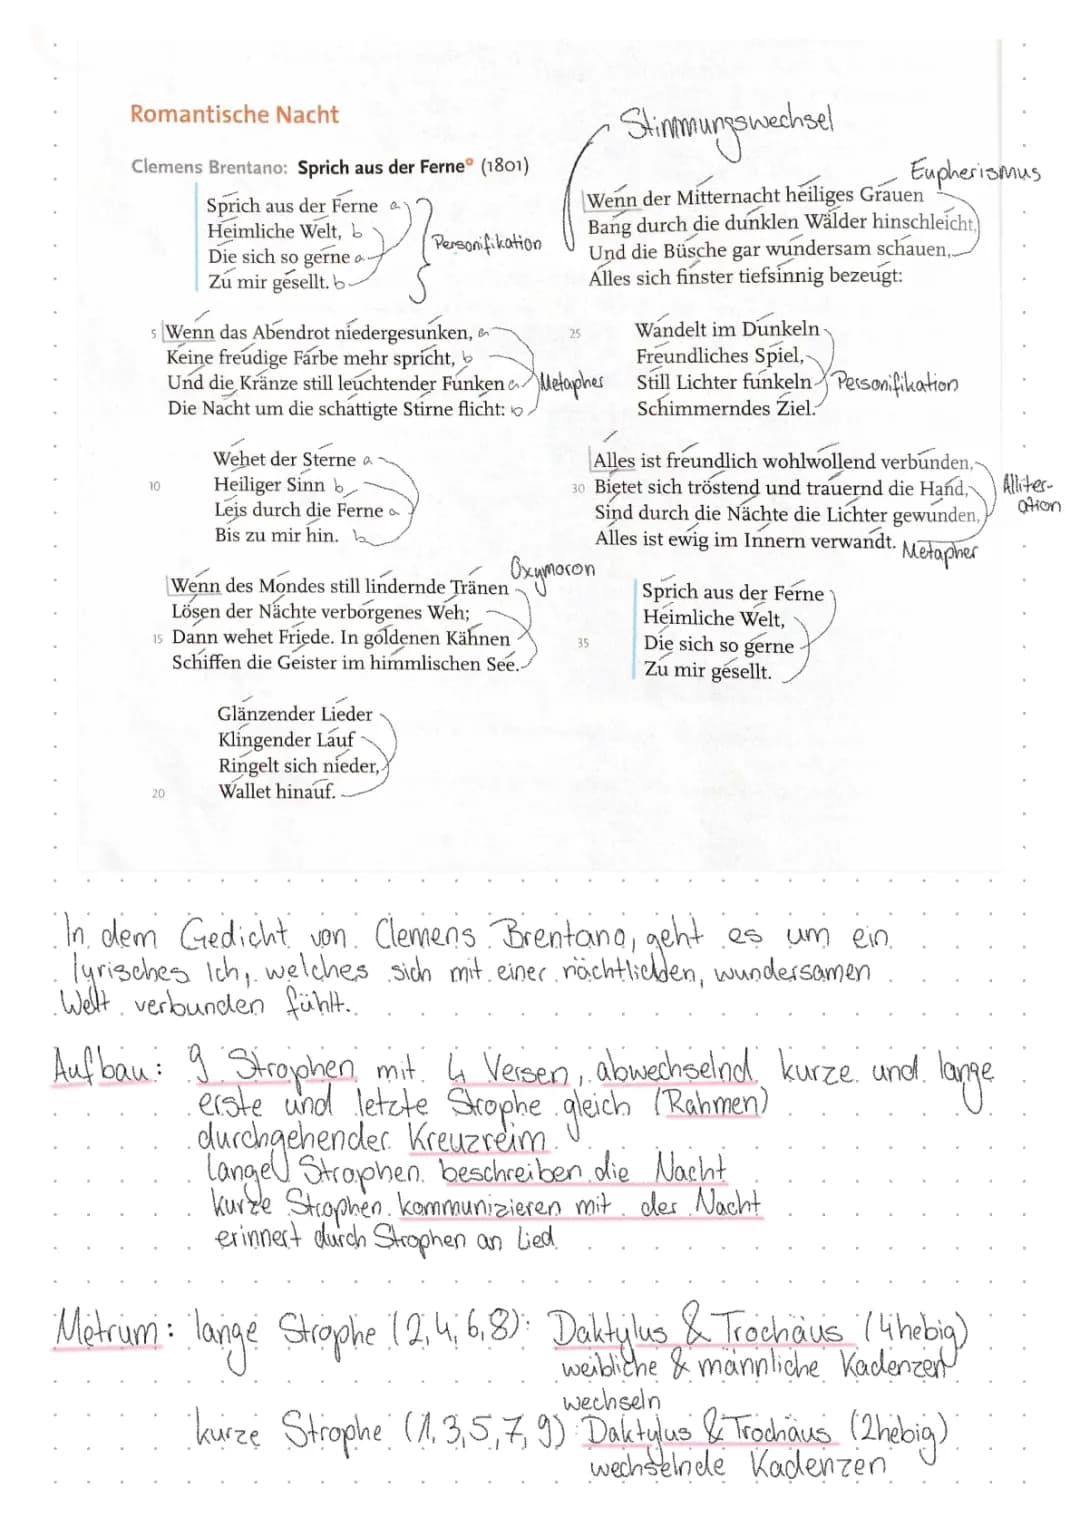 Romantische Nacht
Clemens Brentano: Sprich aus der Ferne° (1801)
Sprich aus der Ferne a
Heimliche Welt, b
Die sich so gerne a
Zu mir gesellt. b
Personifikation
5 Wenn das Abendrot niedergesunken, a
Keine freudige Farbe mehr spricht, b
Und die Kränze still leuchtender Funken a
Die Nacht um die schattigte Stirne flicht: b
Metapher
Wehet der Sterne a
10 Heiliger Sinn b
Leis durch die Ferne a
Bis zu mir hin. b
Oxymoron
Wenn des Mondes still lindernde Tränen
Lösen der Nächte verborgenes Weh;
15 Dann wehet Friede. In goldenen Kähnen
Schiffen die Geister im himmlischen See.
Glänzender Lieder
Klingender Lauf
Ringelt sich nieder,
20 Wallet hinauf.
Stimmungswechsel
Eupherismus
Wenn der Mitternacht heiliges Grauen
Bang durch die dunklen Wälder hinschleicht,
Und die Büsche gar wundersam schauen,
Alles sich finster tiefsinnig bezeugt:
25 Wandelt im Dunkeln
Freundliches Spiel,
Still Lichter funkeln Personifikation
Schimmerndes Ziel.
Alles ist freundlich wohlwollend verbunden,
30 Bietet sich tröstend und trauernd die Hand,
Sind durch die Nächte die Lichter gewunden,
Alles ist ewig im Innern verwandt.
Alliter-
ation
Metapher
Sprich aus der Ferne
Heimliche Welt,
35 Die sich so gerne
Zu mir gesellt.
In dem Gedicht von Clemens Brentano, geht es um ein
lyrisches Ich, welches sich mit einer nächtlichen, wundersamen
Welt verbunden fühlt.
Aufbau: 9 Strophen mit 4 Versen, abwechselnd kurze und lange
erste und letzte Strophe gleich (Rahmen)
durchgehender Kreuzreim
lange Strophen beschreiben die Nacht
kurze Strophen kommunizieren mit der Nacht
erinnert durch Strophen an Lied
Metrum: lange Strophe (2,4,6,8): Daktylus & Trochäus (4hebig)
weibliche & männliche Kadenzen
wechseln
kurze Strophe (1,3,5,7,9): Daktylus & Trochäus (2hebig)
wechselnde Kadenzen